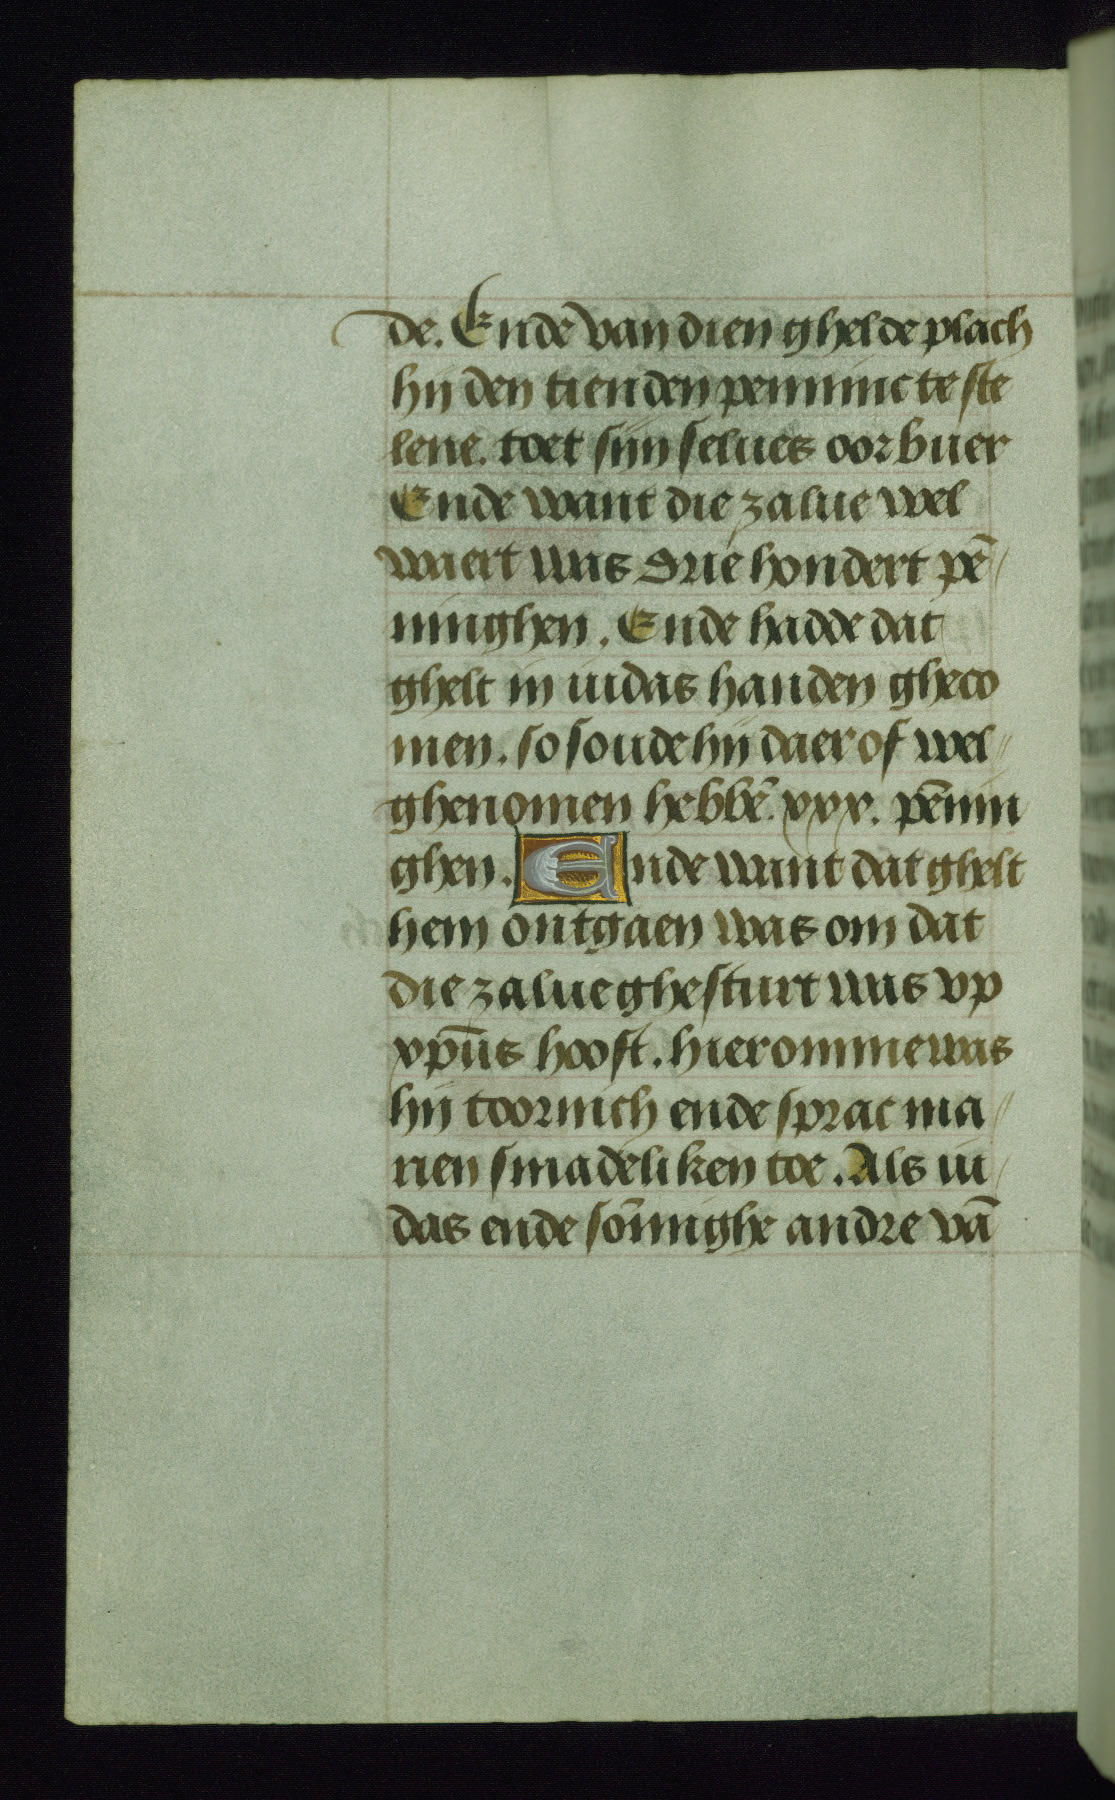 de. Ende van dien ghelde plach
hij den tienden penninc te ste
lene. toet sijn selues oorbuer
Ende want die zalue wel
waert was drie hondert pē/
ninghen. Ende hadde dat
ghelt in iudas handen gheco
men. so soude hij daer of wel//
ghenomen hebbē. xxx. pēnin
ghen. Ende want dat ghelt
hem ontgaen was om dat
die zalue ghesturt was vp
xpūs hooft. hieromme was
hij toornich ende sprac ma//
rien smadeliken toe. Als iu/
das ende sōmighe andre vā